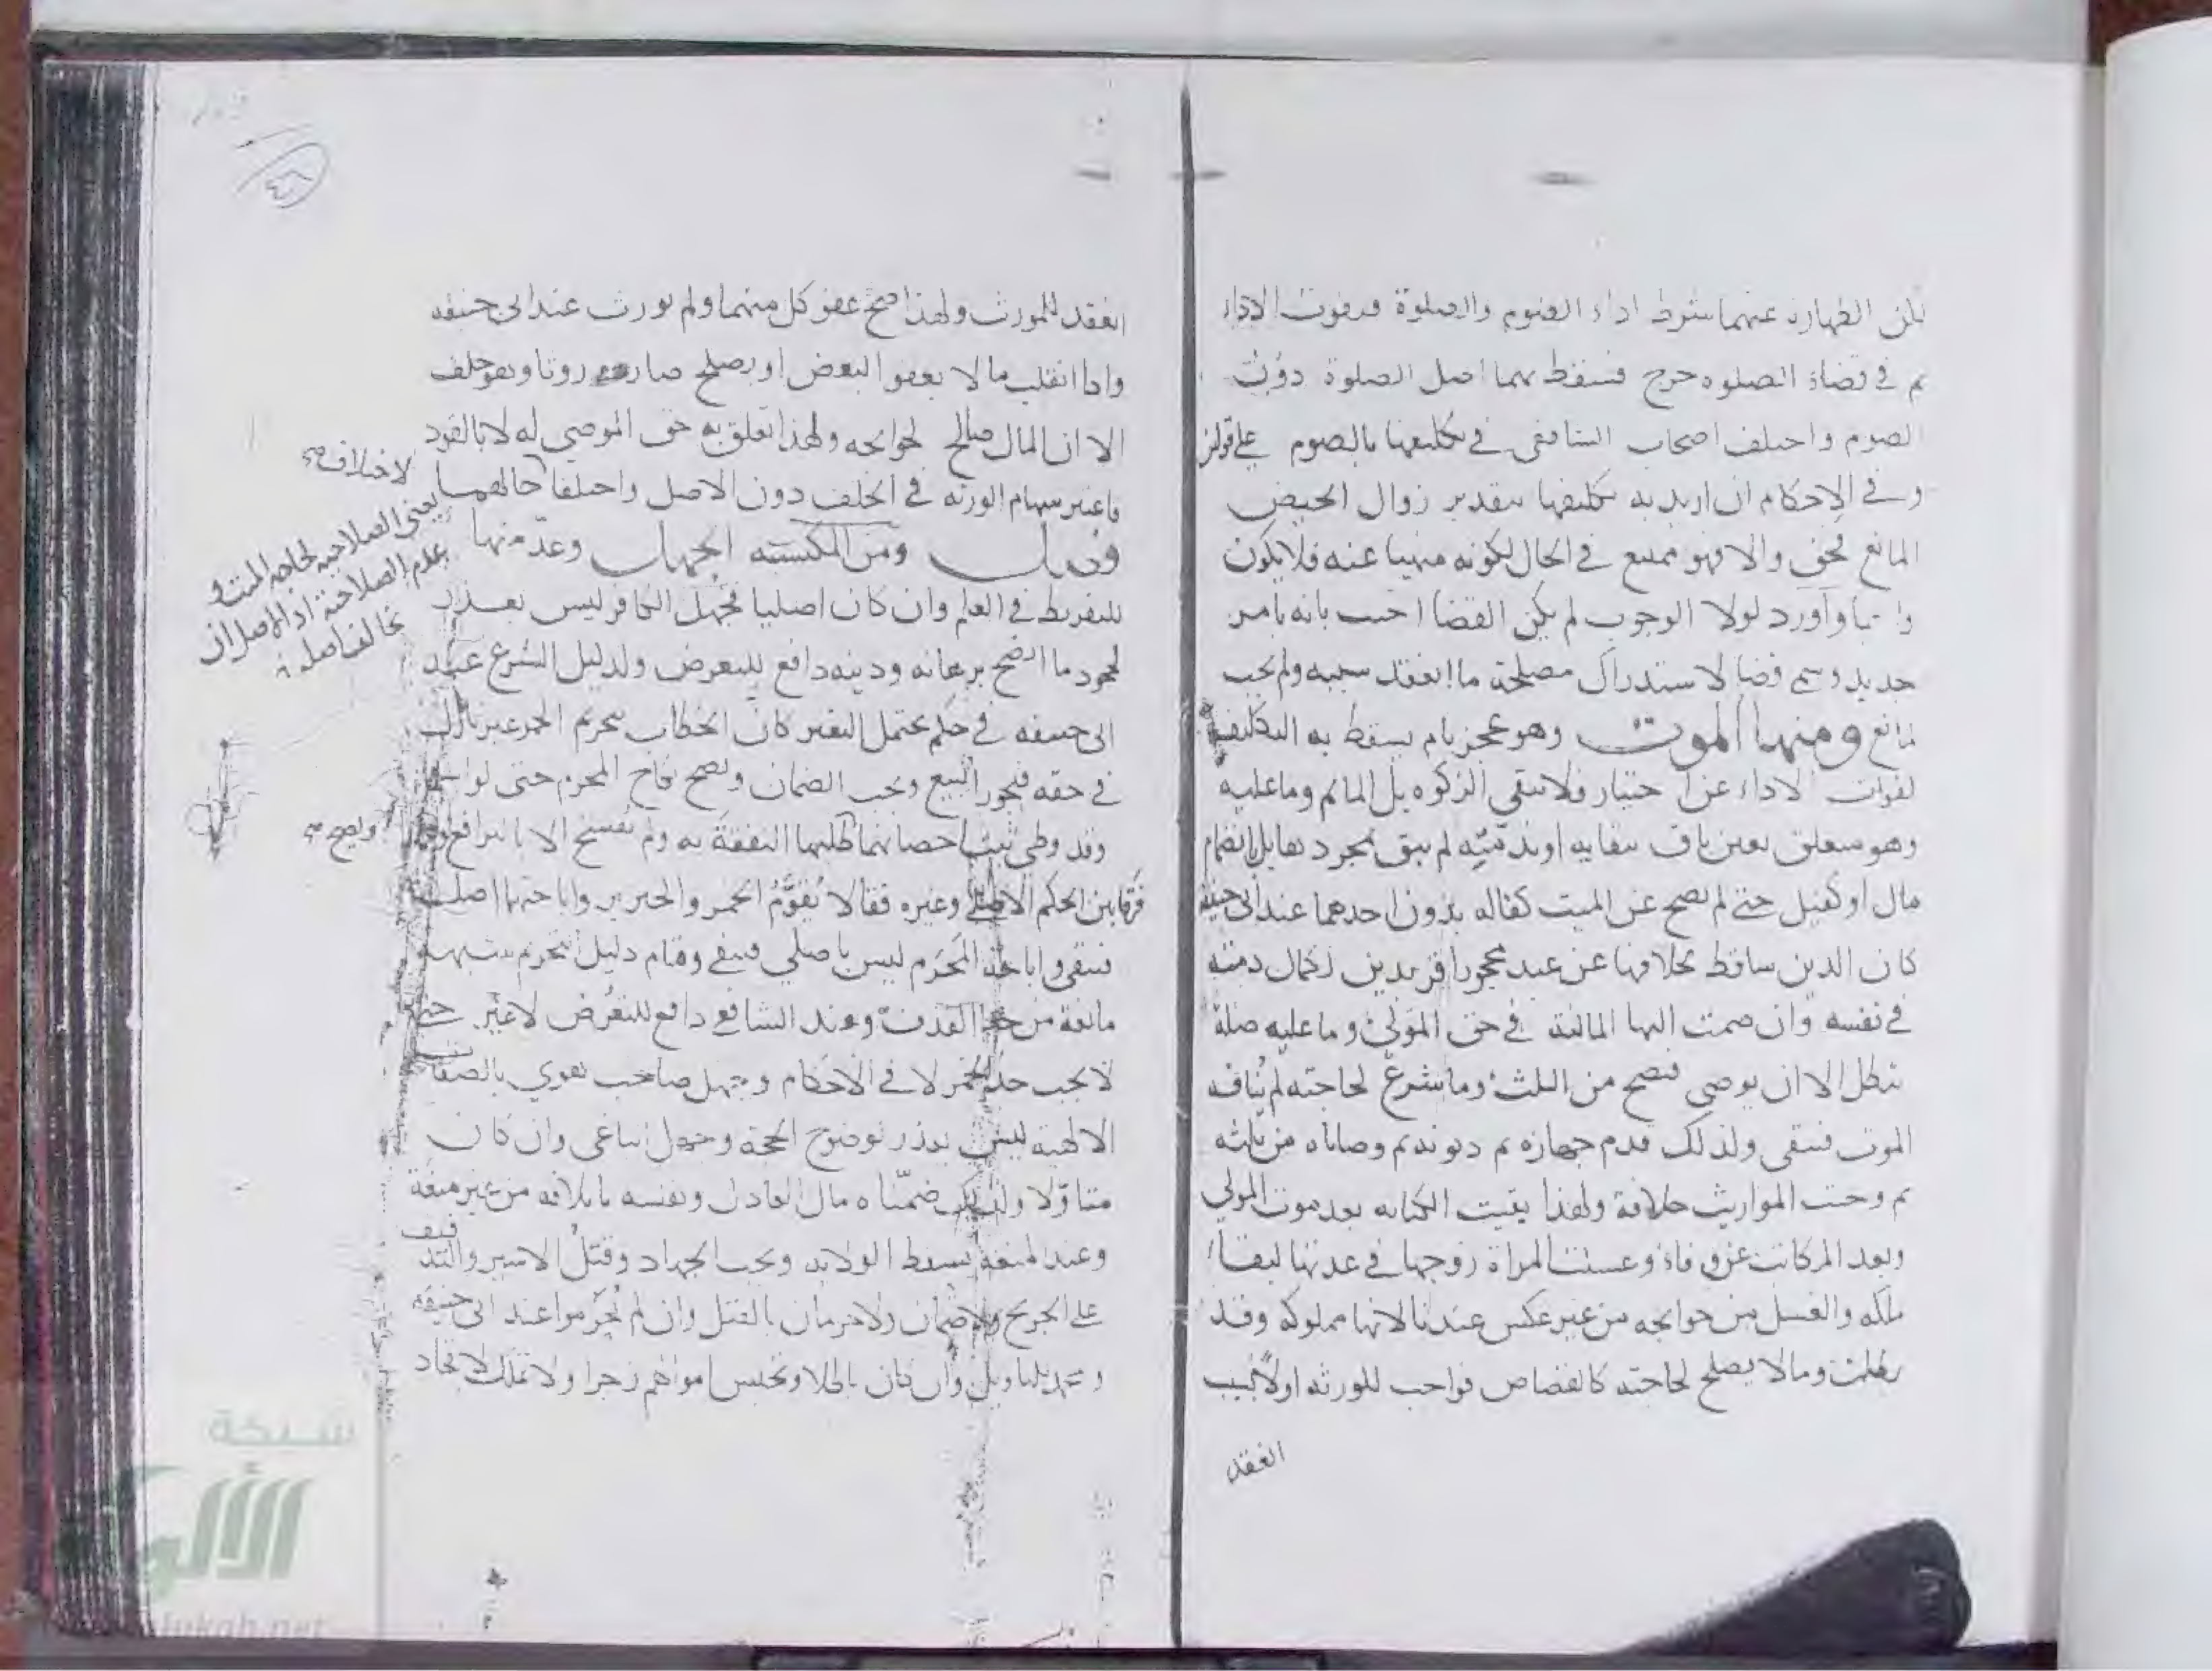 لكن الطهارة عنهما شرط اداء الصوم والصلوة فيفوت الاداء
ثم في قضاء الصلوه حرج فسقط بهما اصل الصلوة دون
الصوم واختلف اصحاب الشافعي في تكليفها بالصوم على قولين
وفي الاحكام ان اريد به تكليفها بتقدير زوال الحيض
المانع فحق والا فهو ممتنع في الحال لكونه منهيا عنه فلا يكون
واجبا واورد لولا الوجوب لم يكن القضا اجيب بانه بامر
جديد وسمي قضا لاستدراك مصلحة ما انعقد سببه ولم يجب
لمانع ومنها الموت وهو عجز تام يسقط به التكليف
لفوات الاداء عن اختيار فلا تبقى الزكوه بل المأثم وما عليه
وهو متعلق بعين باق ببقايه او بذمته لم يبق بمجردها بل بانضمام
مال او كفيل حتى لم تصح عن الميت كفاله بدون احدهما عند ابي حنيفة
كان الدين ساقط بخلافها عن عبد محجور اقر بدين لكمال ذمته
في نفسه وان ضمت اليها المالية في حق المولى وما عليه صلة
بطل الا ان يوصي فتصح من الثلث وما شرع لحاجته لم ينافه
الموت فتبقى ولذلك قدم جهازه ثم ديونه ثم وصاياه من ثلثه
ثم وجبت المواريث خلافة ولهذا بقيت الكتابه بعد موت المولى
وبعد المكاتب عن وفاء وغسلت المراة زوجها في عدتها لبقاء
ملكه والغسل من حوايجه من غير عكس عندنا لانها مملوكة وقد
بطلت وما لا يصلح لحاجته كالقصاص فواجب للورثه اولا لسبب
انعقد
انعقد للمورث ولهذا صح عفو كل منهما ولم يورث عند ابي حنيفه
واذا انقلب مالا بعفو البعض او بصلح صار موروثا وهو خلف
الا ان المال صالح لحوايجه ولهذا تعلق به حق الموصى له لا بالقود
فاعتبر سهام الورثه في الخلف دون الاصل واختلفا حالهما
لاختلاف صح
يعني الصلاحية لحاجه الميت و
عدم الصلاحية اذ الاصل ان
يخالف اصله
ومن المكتسبه الجهل وعدّ منها
للتفريط في العلم وان كان اصليا فجهل الكافر ليس بعذر
لجحود ما اتضح برهانه ودينه دافع للتعرض ولدليل الشرع عند
ابي حنيفه في حكم يحتمل التغير كان الخطاب بتحريم الخمر غير نازل
في حقه فيجوز البيع ويجب الضمان ويصح نكاح المحرم حتى لو
وقد وطي ثبت احصانهما طلبها النفقة به ولم يفسخ الا بالترافع
ويصح صح
فرقا بين الحكم الاصلي وغيره فقالا تقوّم الخمر والخنزير واباحتهما اصل
فتبقى واباحة المحرم ليس باصلي فبقي وقام دليل التحريم شبهه
مانعة من حد القذف وعند الشافعي دافع للتعرض لا غير حتى
لا يجب حد الخمر لا في الاحكام وجهل صاحب هوي بالصفات
الالهية ليس بعذر لوضوح الحجة وجهل الباغي وان كان
متاولا ولذلك ضمناه مال العادل ونفسه باتلافه من غير منعة
وعند المنعه تسقط الولايه ويجب الجهاد وقتل الاسير والتدفيف
على الجريح ولا ضمان ولا حرمان بالقتل وان لم يحرموا عند ابي حنيفه
وان كان باطلا وتحبس اموالهم زجرا ولا تملك لاتحاد
٤٦
شبكة
الألوكة